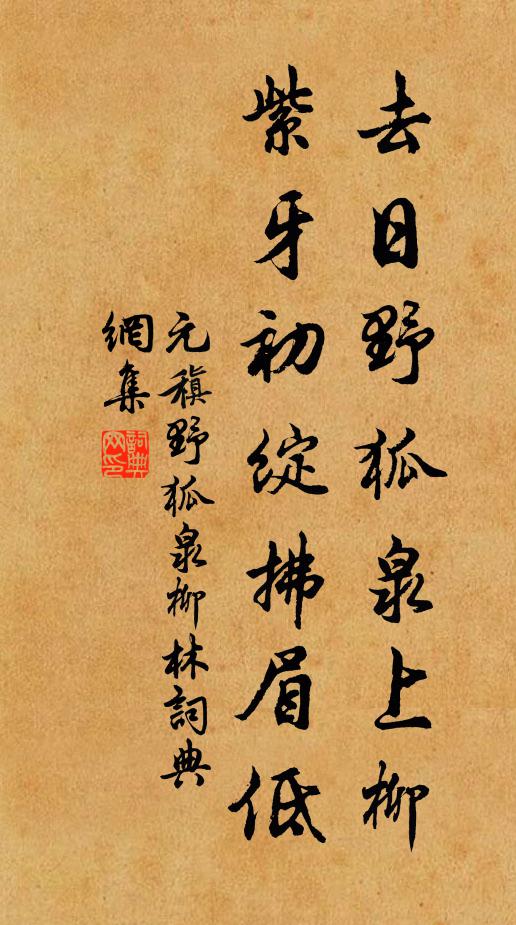 去日野狐泉上柳
紫牙初綻拂眉低
元稹野狐泉柳林詞典
網集
詞典
网印